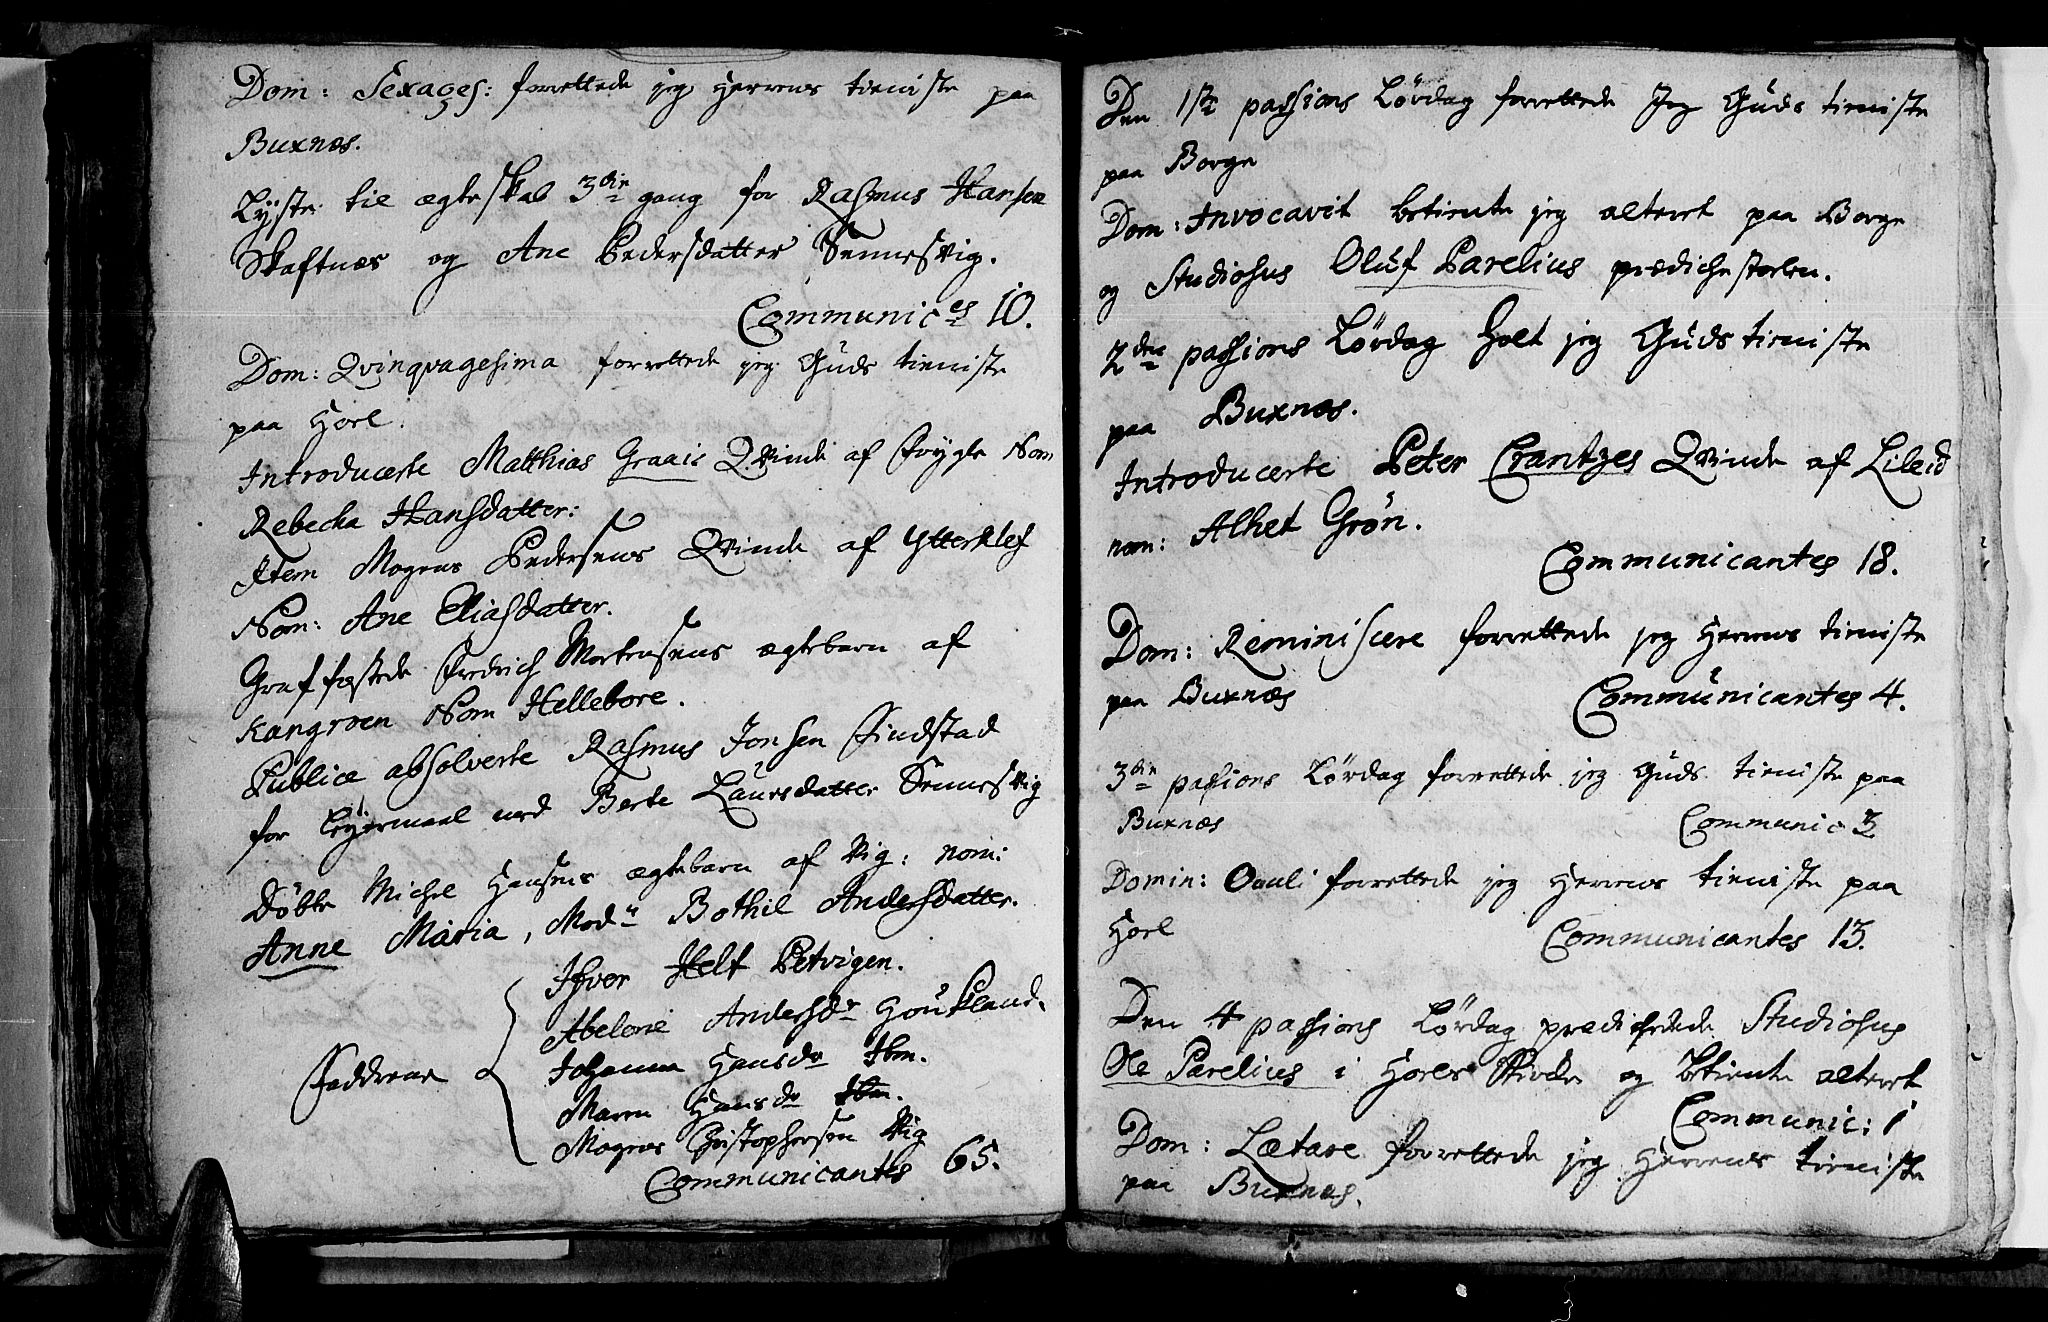 Dom: Sexages: forrettede jeg Herrens tieniste paa
Buxnæs.
Lyste til ægteskab 3die gang for Rasmus Hansen
Skaftnæs og Ane Pedersdatter Sennesvig.
Communices 10.
Dom: Qvinqvagesima forrettede jeg Guds tieniste
paa Hoel.
Introducerte Matthias Graais Qvinde af Frygle Nom
Rebecka Hansdatter:
Item Mogens Pedersens Qvinde af Ytterklef
Nom: Ane Eliasdatter.
Graffæstede Fredrich Mortensens ægtebarn af
Kangroen Nom Hellebore.
Publice absolverte Rasmus Jonsen Findstad
for Leyermaal med Berte Laursdatter Sennesvig
Döbte Michel Hansens ægtebarn af Vig: nom:
Anne Maria, Modn Bothil Andersdatter.
Ifver Helt Petvigen.
Abelone Andersdr Goukland.
Fadderne Johanna Hansdr Ibm.
Maren Hansdr Ibm.
Mogens Christophersen Vig
Communicantes 65.
Den 1ste passions Lördag forrettede Jeg Guds tieniste
paa Borge
Dom: Invocavit betiente jeg alteret paa Borge
og Studiosus Oluf Parelius prædichestolen.
2den passions Lördag holt jeg Guds tieniste
paa Buxnæs.
Introducerte Peter Crantzes Qvinde af Lileid
nom: Alhet Grön.
Communicantes 18.
Dom: Reminiscere forrettede jeg Herrens tieniste
paa Buxnæs Communicantes 4.
3die passions Lördag forrettede jeg Guds tieniste paa
Buxnæs Communic 3
Domin: Oculi forrettede jeg Herrens tieniste paa
Hoel Communicantes 13.
Den 4 passions Lördag prædichede Studiosus
Ole Parelius i Hoels Kirche og betiente alteret
Communic: 1
Dom: Lætare forrettede jeg Herrens tieniste
paa Buxnæs.